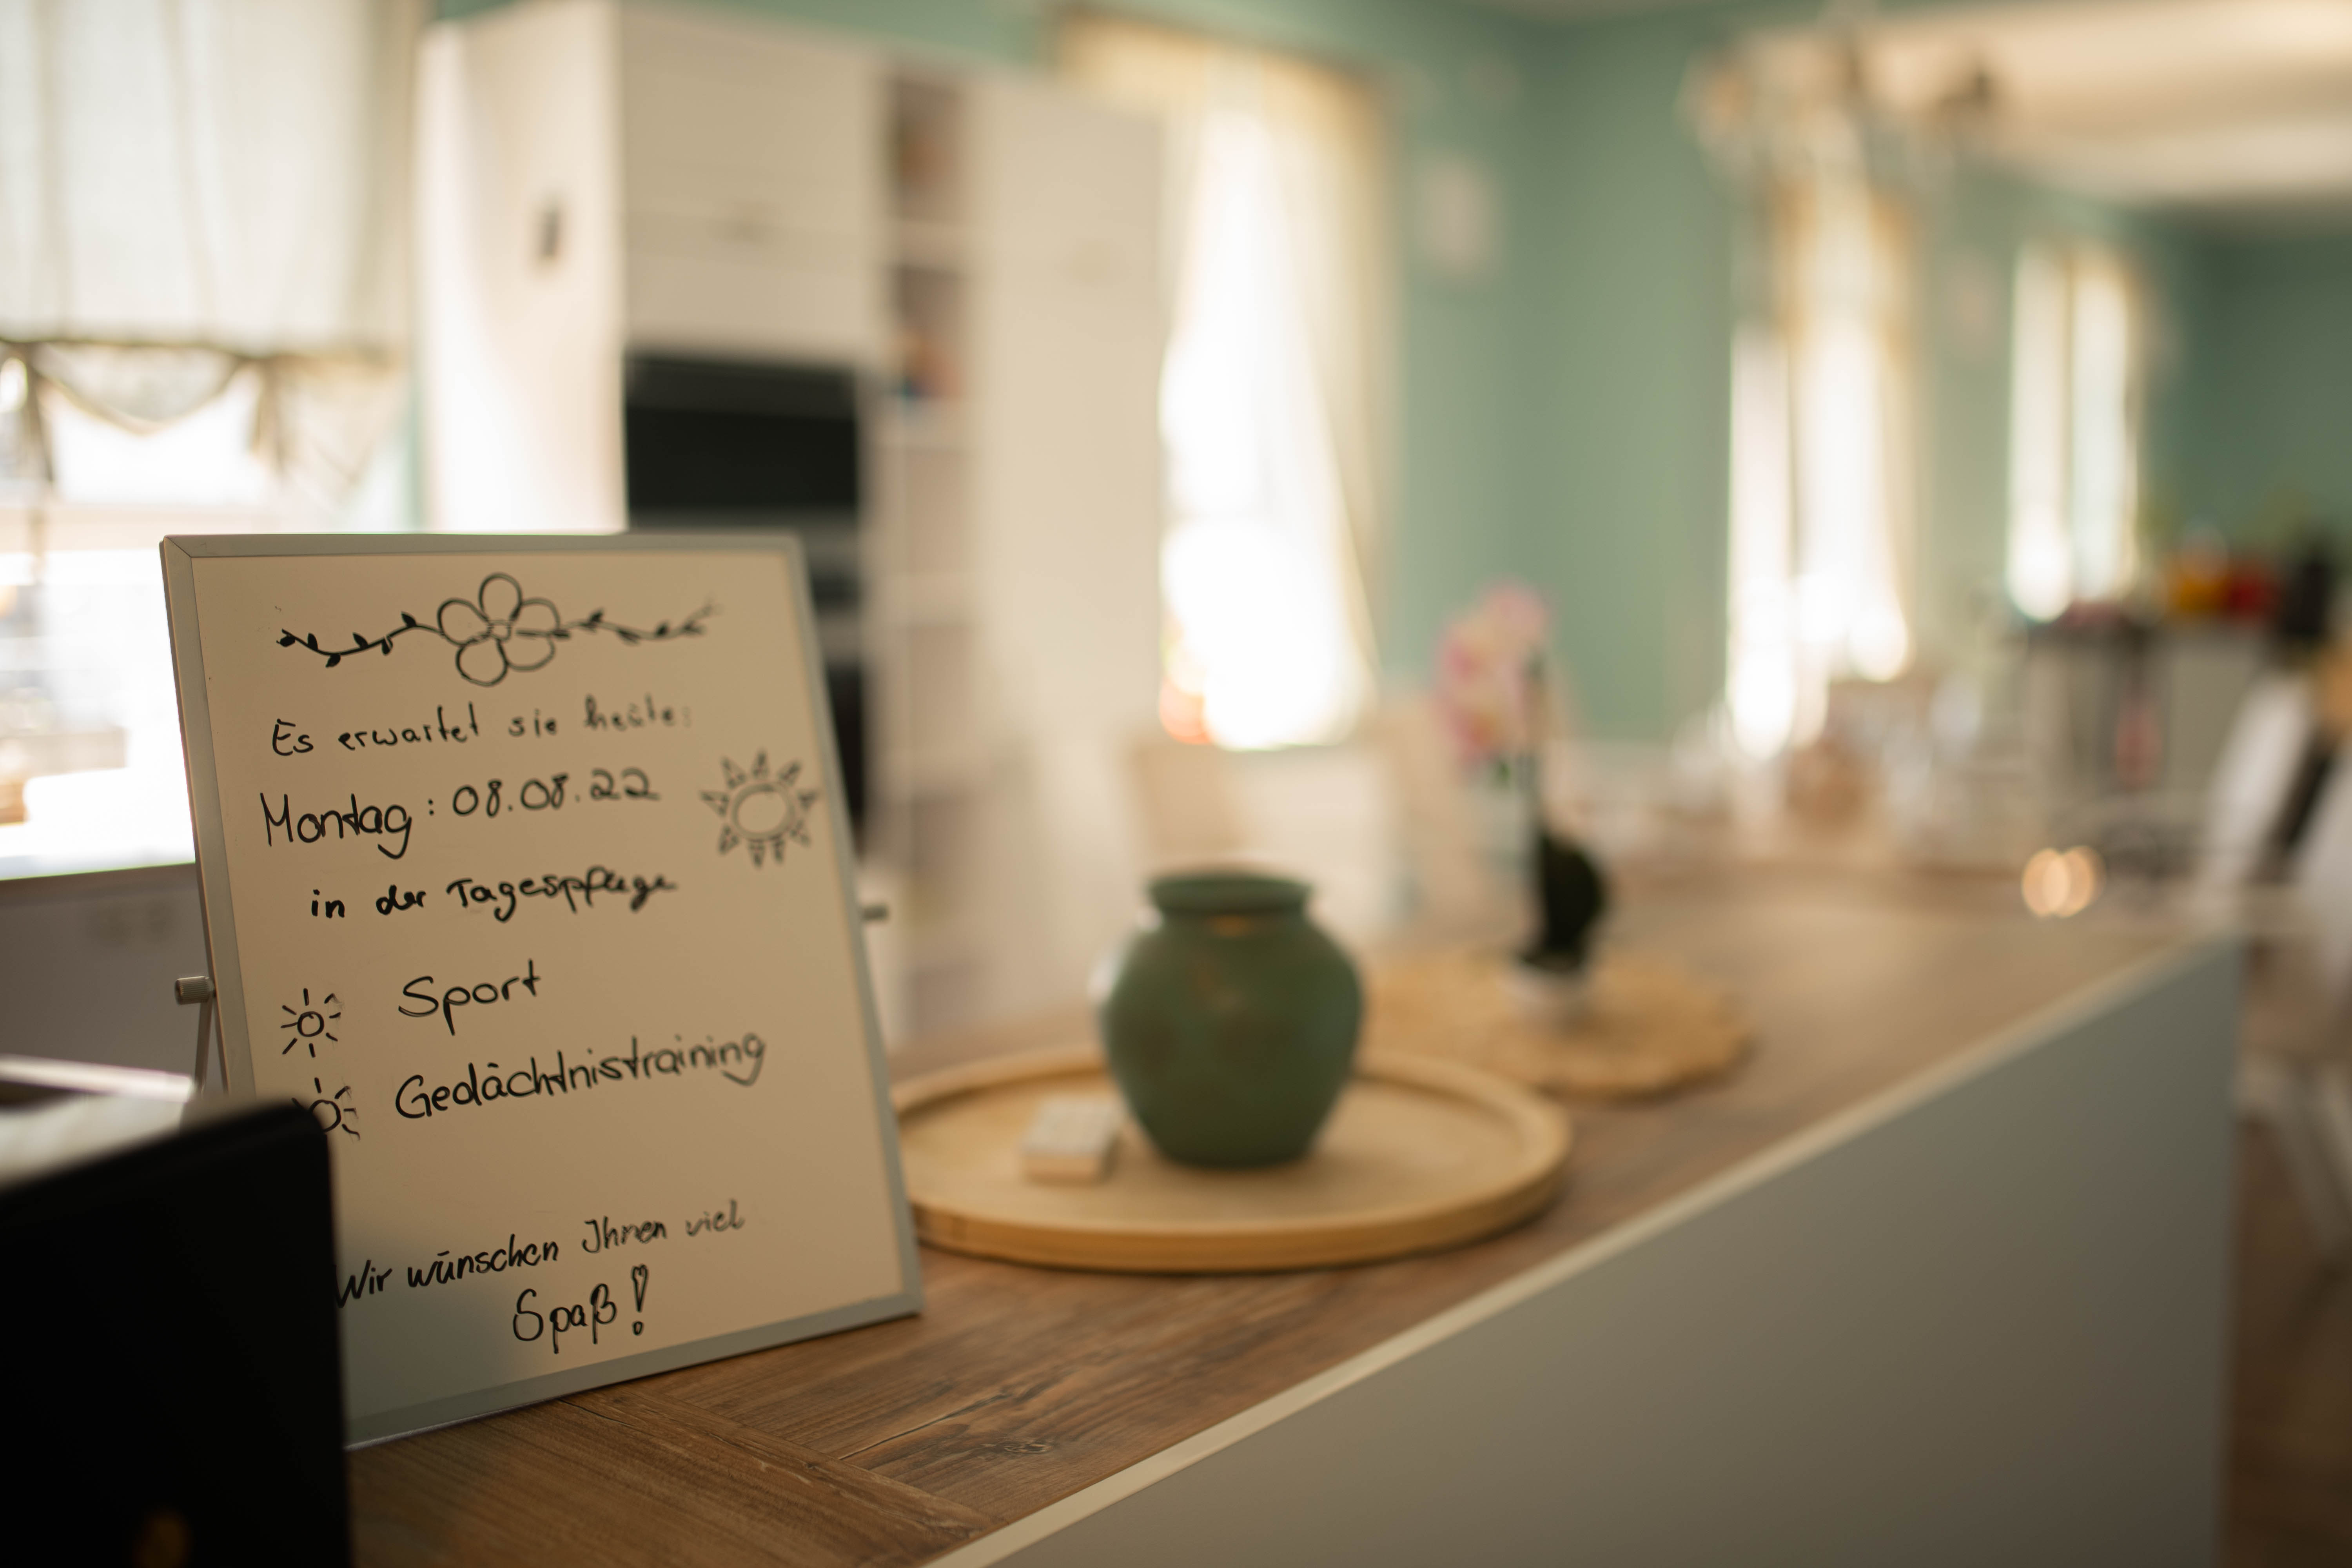 Es erwartet sie heute:
Montag: 08.08.22
in der Tagespflege
Sport
Gedächtnistraining
Wir wünschen Ihnen viel
Spaß!